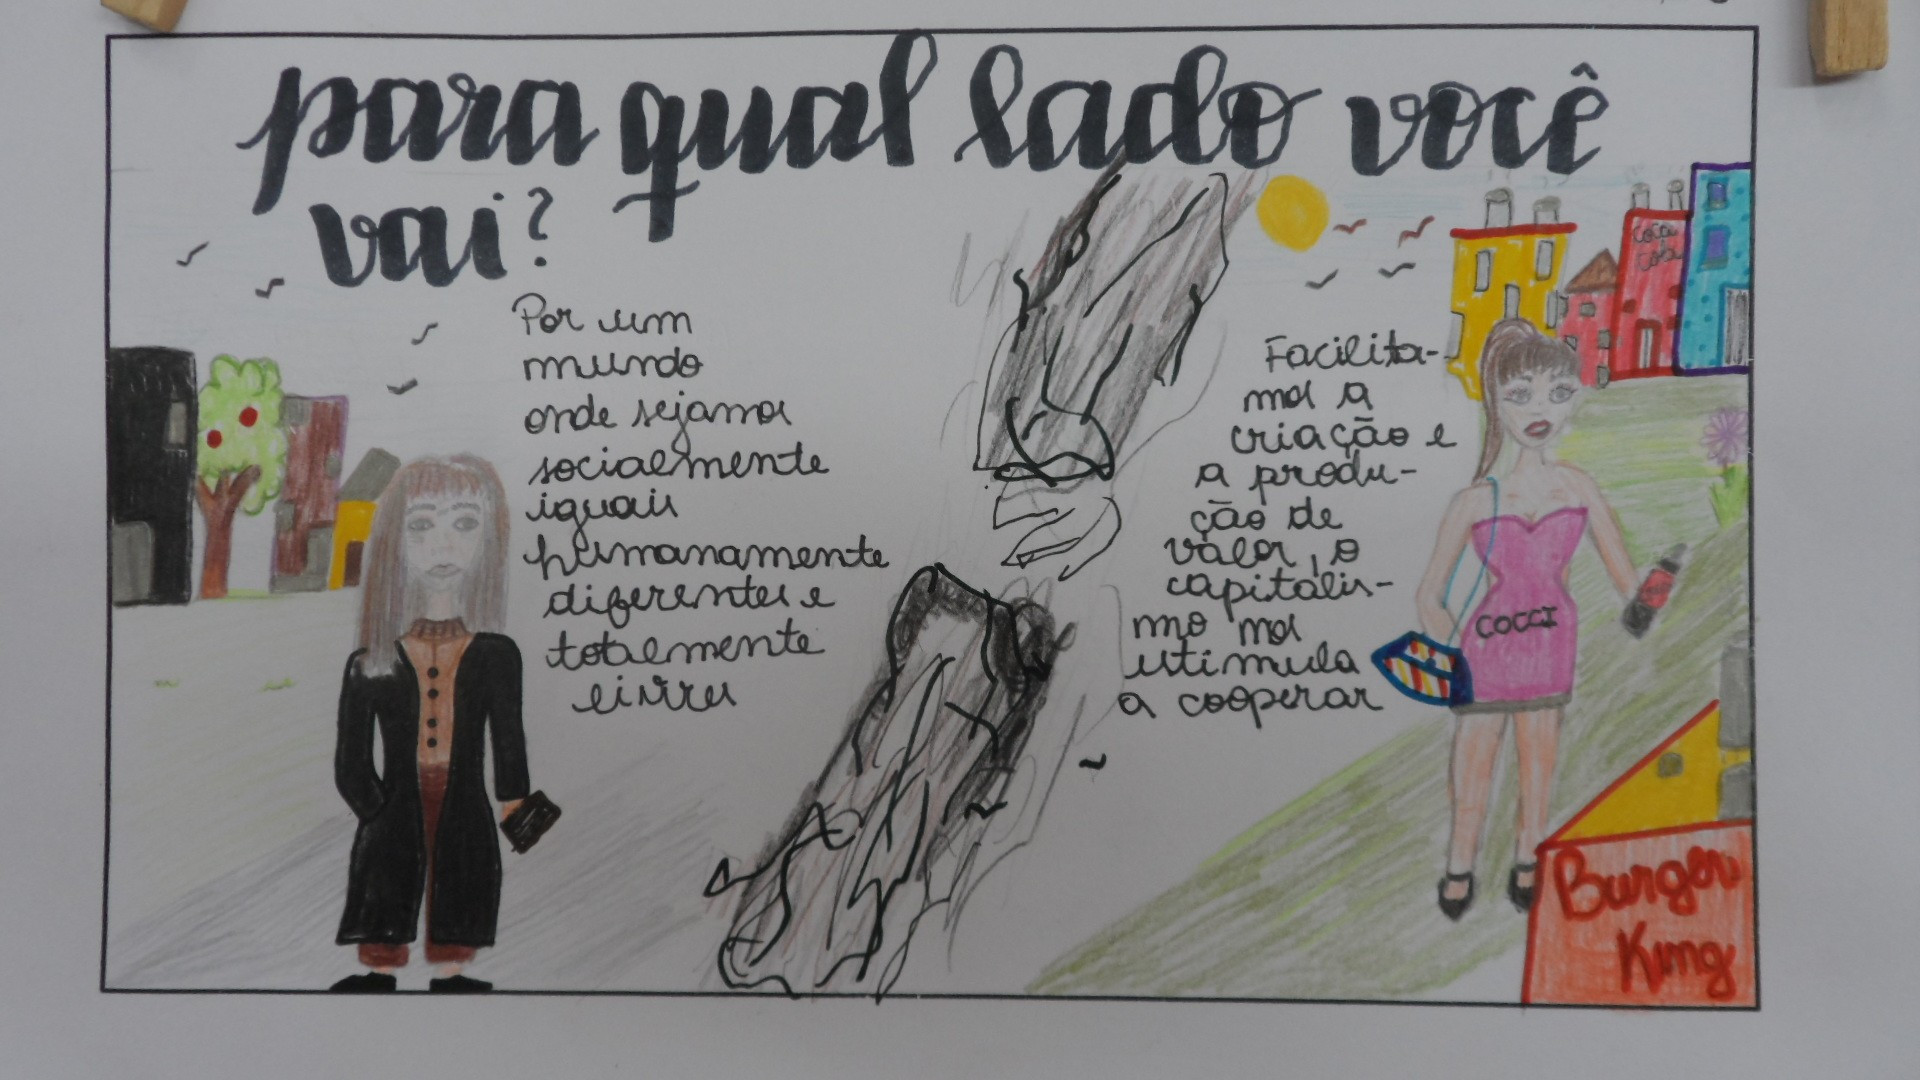 para qual lado você
vai?
Por um
mundo
onde sejamos
socialmente
iguais
humanamente
diferentes e
totalmente
livres
Facilita-
nos a
criação e
a produ-
ção de
valor, o
capitalis-
mo nos
estimula
a cooperar
COCCI
Coca
Cola
Burger
King